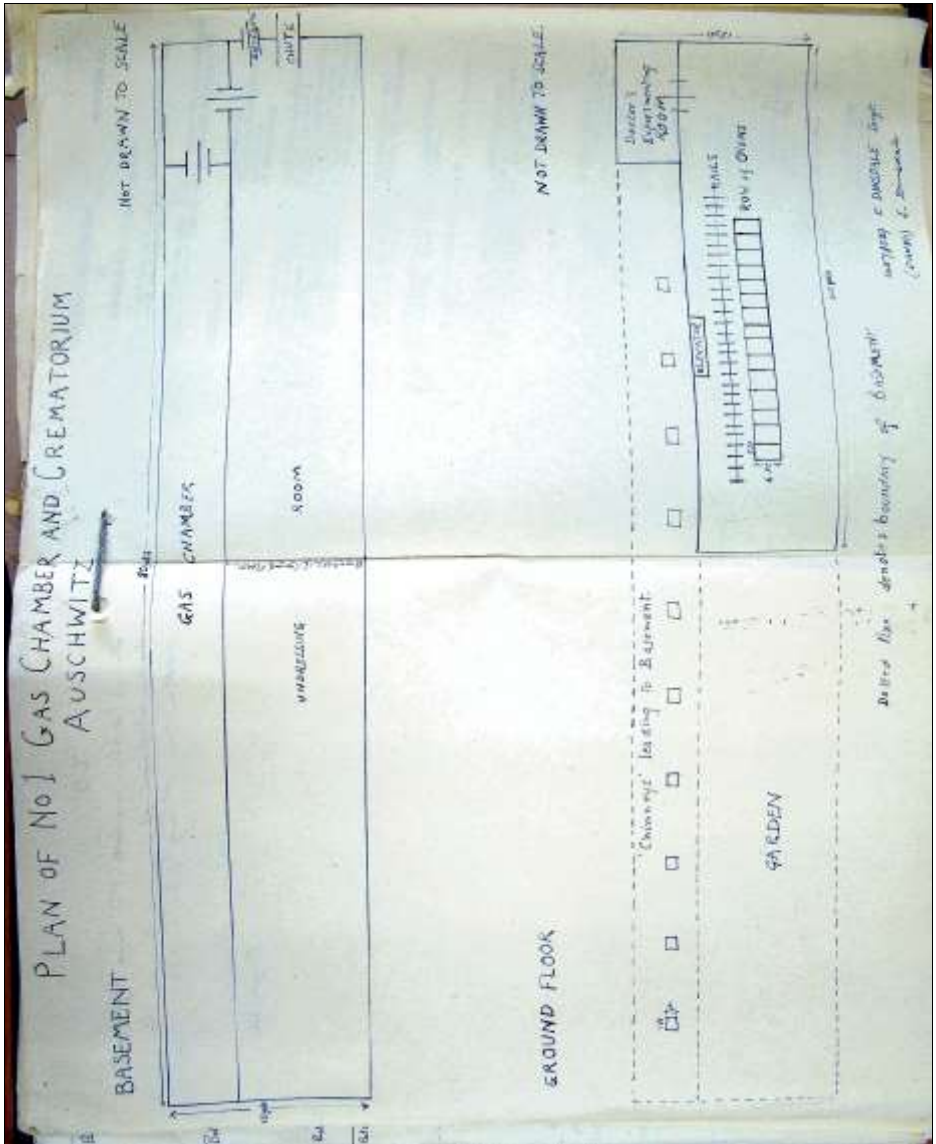 PLAN OF NO 1 GAS CHAMBER AND CREMATORIUM
AUSCHWITZ
BASEMENT
NOT DRAWN TO SCALE
GAS CHAMBER
UNDRESSING ROOM
CHUTE
GROUND FLOOR
NOT DRAWN TO SCALE
'Chimneys' leading to Basement
Doctor's
Experimenting
ROOM
ELEVATOR
RAILS
ROW of OVENS
GARDEN
Dotted line denotes boundary of BASEMENT